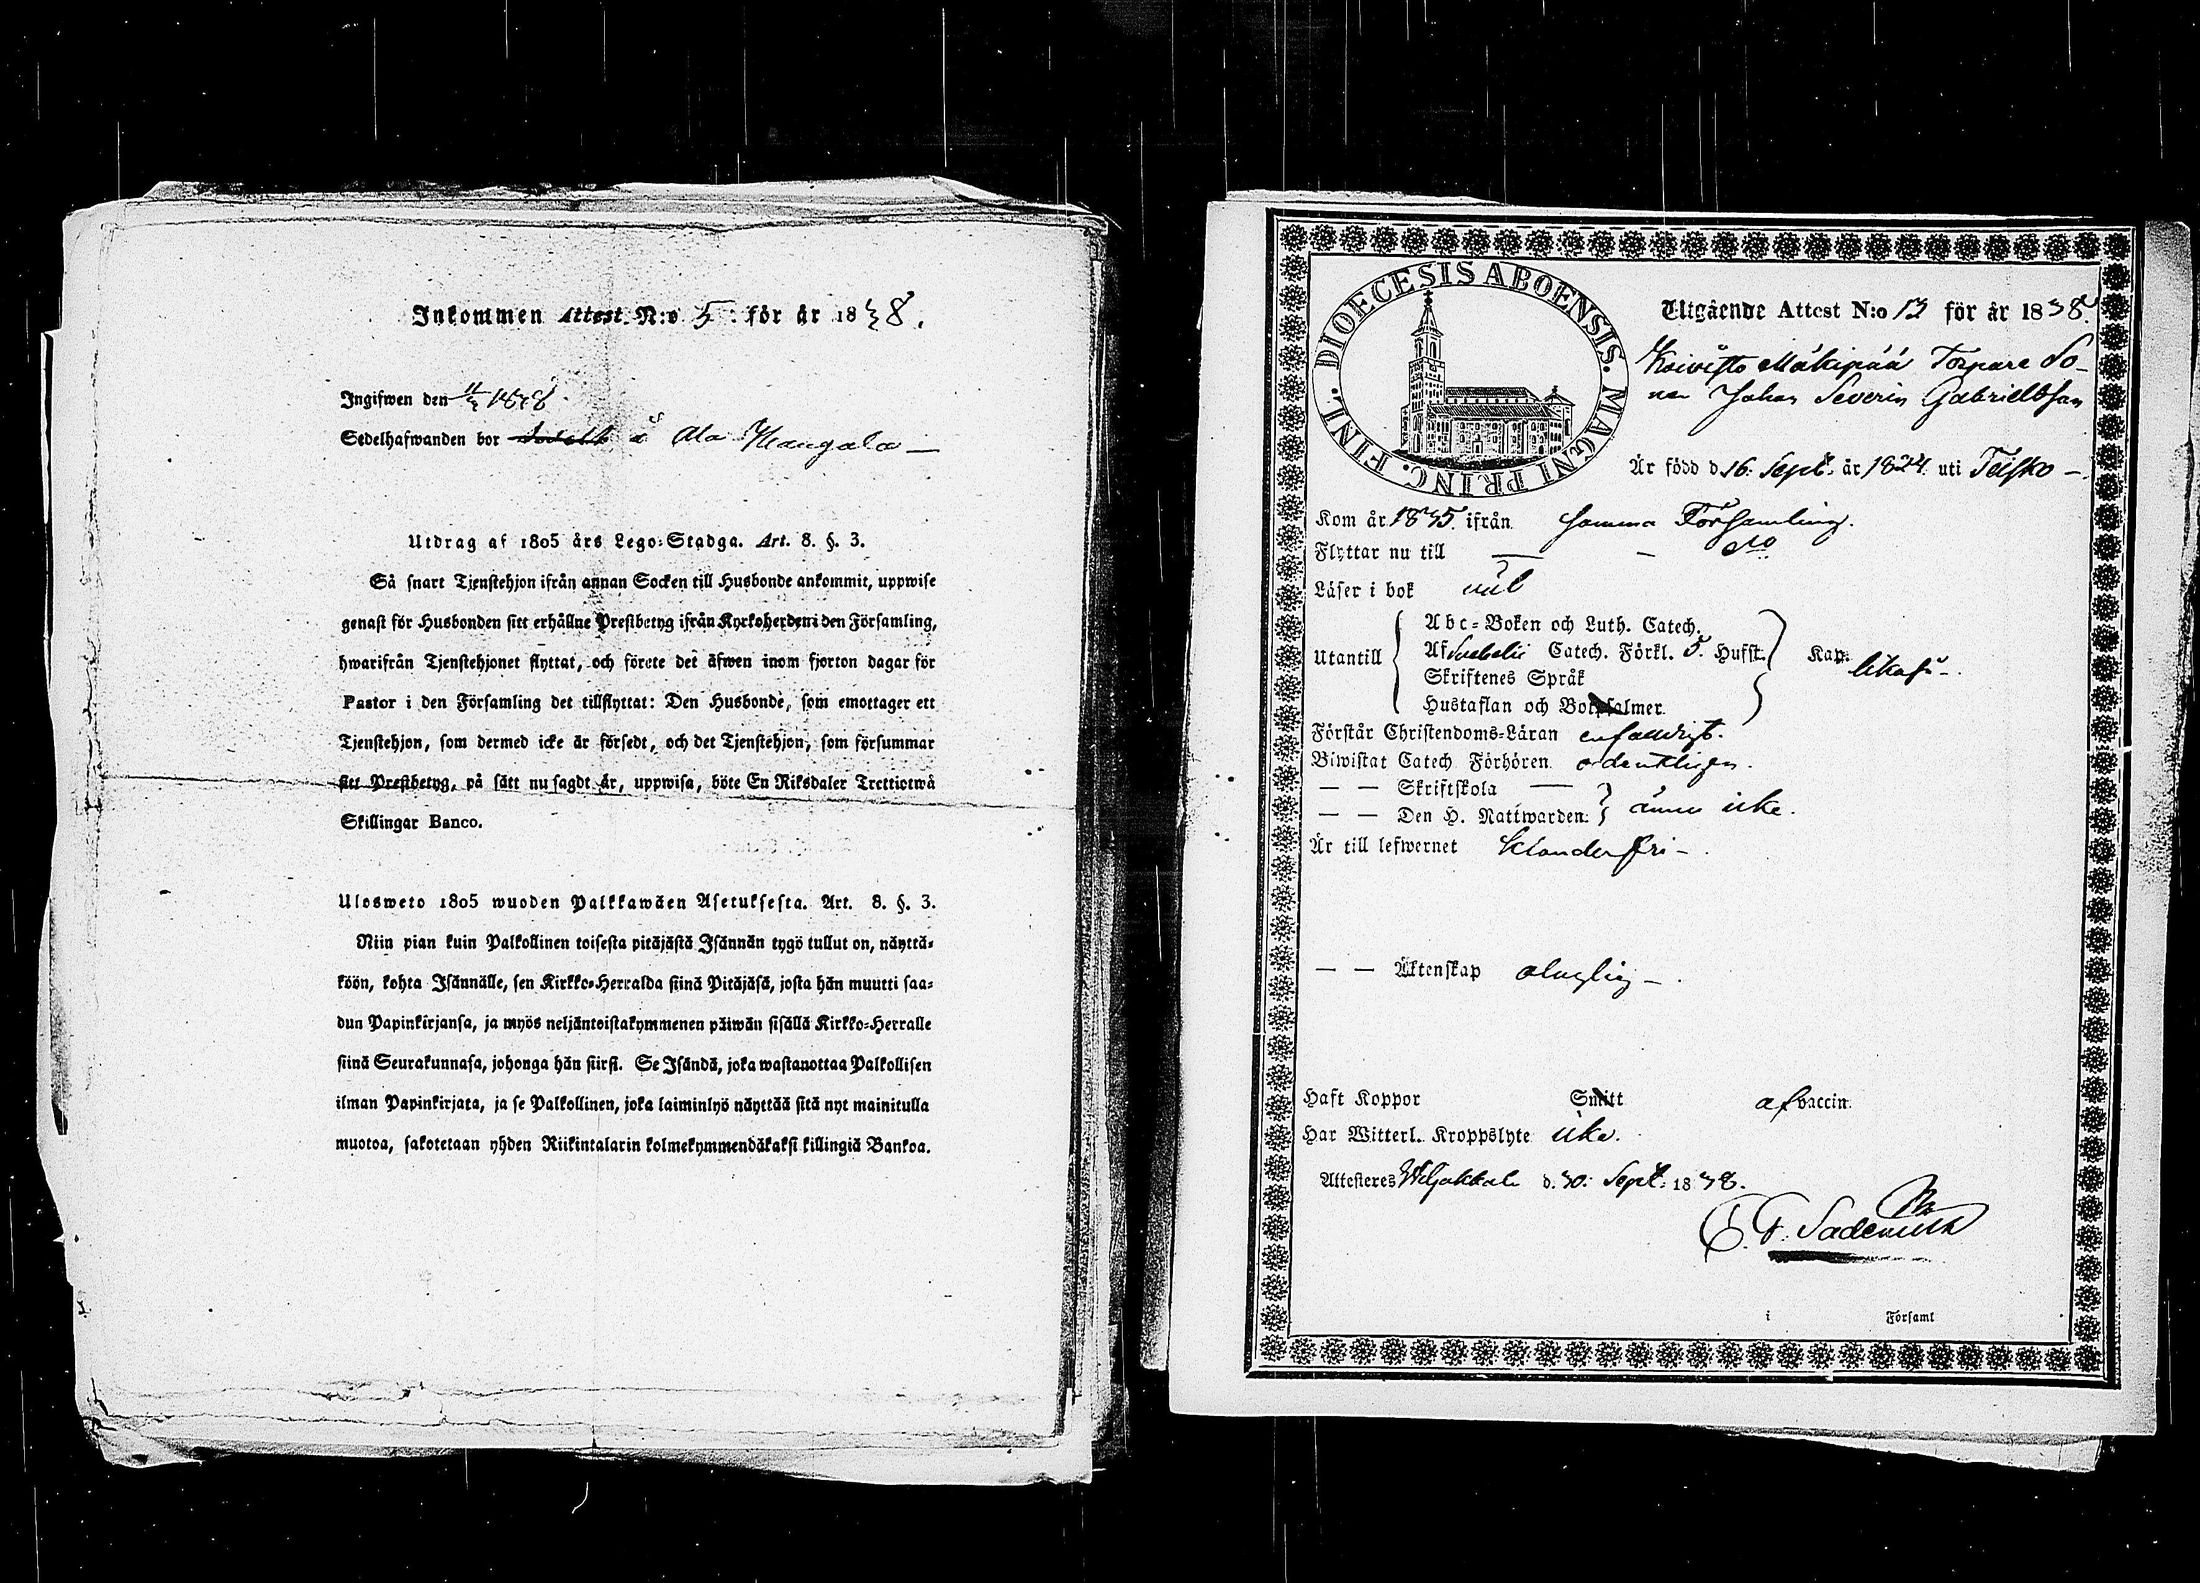 Inkommen Attest N:o 5 för år 1838.
Ingifwen den 1838.
Sedelhafwanden bor å Ala Kaugala
Utdrag af 1805 års Lego-Stadga. Art. 8. §. 3.
Så snart Tjenstehjon ifrån annan Socken till Husbonde ankommit, uppwise
genast för Husbonden sitt erhållne Prestbetyg ifrån Kyrkoherden i den Församling,
hwarifrån Tjenstehjonet flyttat, och förete det äfwen inom fjorton dagar för
Pastor i den Församling det tillflyttat: Den Husbonde, som emottager ett
Tjenstehjon, som dermed icke är försedt, och det Tjenstehjon, som försummar
sitt Prestbetyg, på sätt nu sagdt är, uppwisa, böte En Riksdaler Trettiotwå
Skillingar Banco.
Ulosweto 1805 wuoden Palkkawäen Asetuksesta. Art. 8. §. 3.
Niin pian kuin Palkollinen toisesta pitäjästä Isännän tygö tullut on, näyttä-
köön, kohta Isännälle, sen Kirkko-Herralda siinä Pitäjäsä, josta hän muutti saa-
dun Papinkirjansa, ja myös neljäntoistakymmenen päiwän sisällä Kirkko-Herralle
siinä Seurakunnasa, johonga hän siirsi. Se Isändä, joka wastanottaa Palkollisen
ilman Papinkirjata, ja se Palkollinen, joka laiminlyö näyttää sitä nyt mainitulla
muotoa, sakotetaan yhden Riikintalarin kolmekymmendäkaksi killingiä Bankoa.
DIOECESIS ABOENSIS. MAGNI PRINC. FINL.
Utgående Attest N:o 13 för år 1838.
Koivisto Mäkipää Torpare So-
nen Johan Severin Gabrielsson
Är född d. 16. Sept. år 1824. uti Teisko
Kom år 1835. ifrån samma Församling.
Flyttar nu till do
Läser i bok väl
Utantill
Abc-Boken och Luth. Catech.
Af Svebelii Catech. Förkl. 5. Hufst. Kap. likaså
Skriftenes Språk
Hustaflan och Botpsalmer.
Förstår Christendoms-Läran enfaldigt.
Biwistat Catech. Förhören ordentligen.
— — Skriftskola
— — Den H. Nattwarden: ännu icke.
Är till lefwernet klanderfri
— — Äktenskap oduglig
Haft Koppor Smitt af vaccin.
Har Witterl. Kroppslyte icke.
Attesteres Wiljakkala d. 30. Sept. 1838.
i Församl